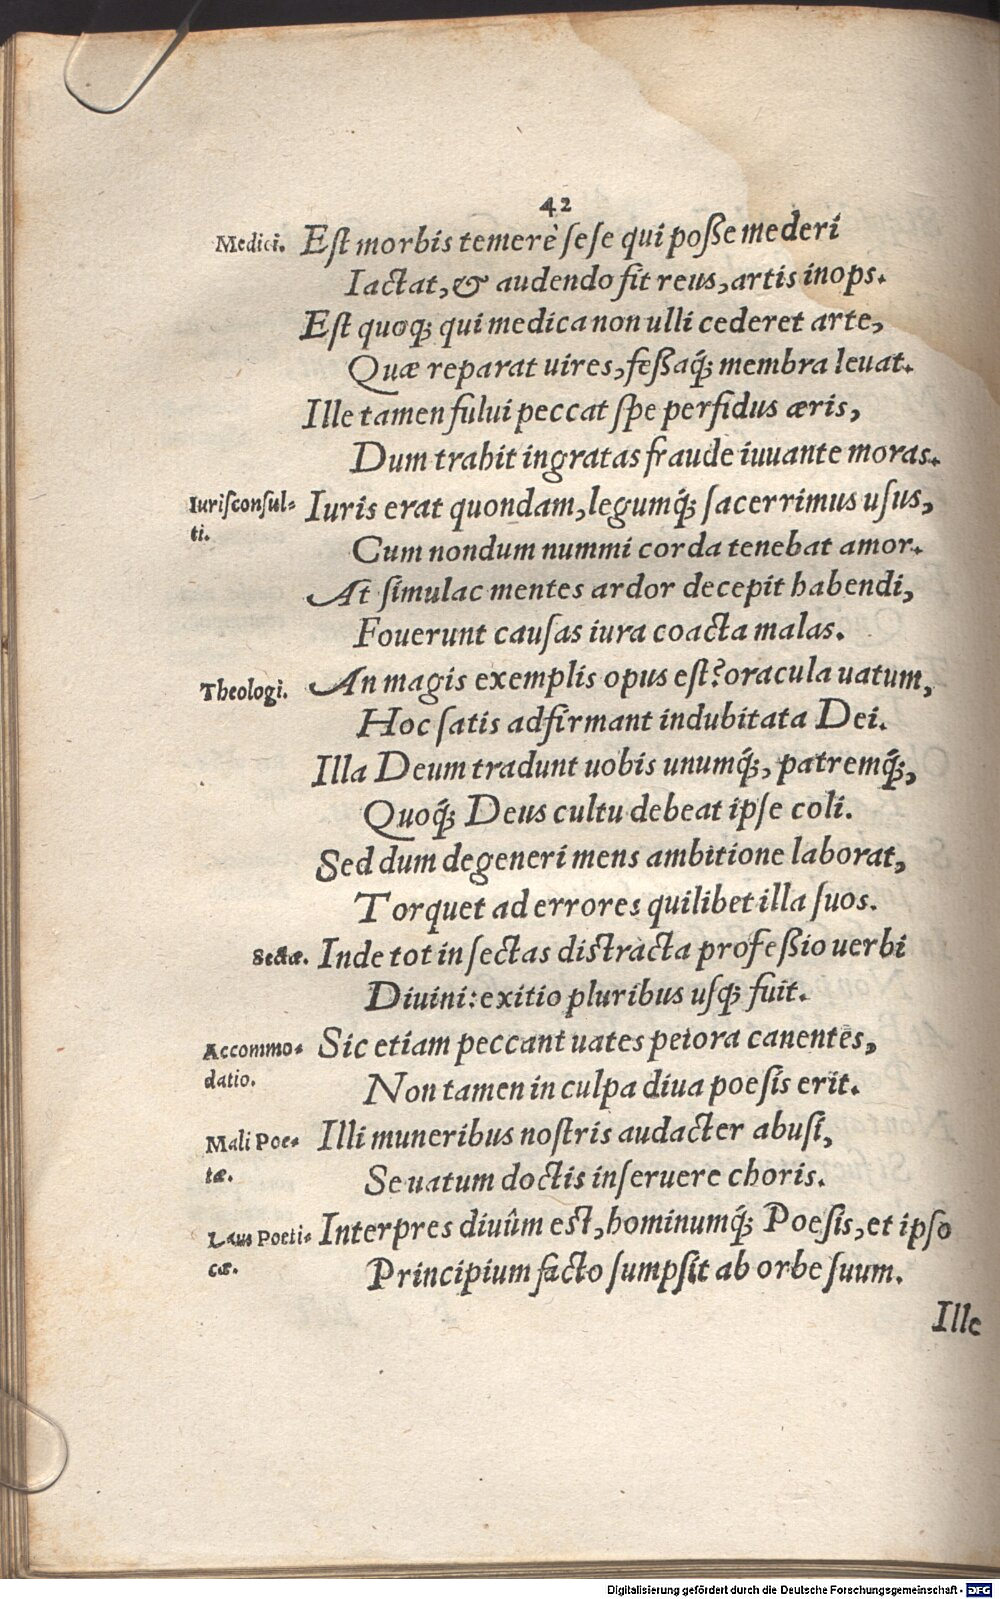 42
Medici. Est morbis temerè sese qui poße mederi
Iactat, & audendo fit reus, artis inops.
Est quoq; qui medica non ulli cederet arte,
Quæ reparat uires, feßaq́; membra leuat.
Ille tamen fului peccat spe perfidus æris,
Dum trahit ingratas fraude iuuante moras.
Iurisconsul- Iuris erat quondam, legumq́; sacerrimus usus,
ti. Cum nondum nummi corda tenebat amor.
At simulac mentes ardor decepit habendi,
Fouerunt causas iura coacta malas.
Theologi. An magis exemplis opus est? oracula uatum,
Hoc satis adfirmant indubitata Dei.
Illa Deum tradunt uobis unumq́;, patremq́;,
Quoq́; Deus cultu debeat ipse coli.
Sed dum degeneri mens ambitione laborat,
Torquet ad errores quilibet illa suos.
Sectæ. Inde tot in sectas distracta profeßio uerbi
Diuini: exitio pluribus usq; fuit.
Accommo- Sic etiam peccant uates peiora canentes,
datio. Non tamen in culpa diua poesis erit.
Mali Poe- Illi muneribus nostris audacter abusi,
tæ. Se uatum doctis inseruere choris.
Laus Poeti- Interpres diuûm est, hominumq́; Poesis, et ipso
cæ. Principium facto sumpsit ab orbe suum.
Ille
Digitalisierung gefördert durch die Deutsche Forschungsgemeinschaft - DFG